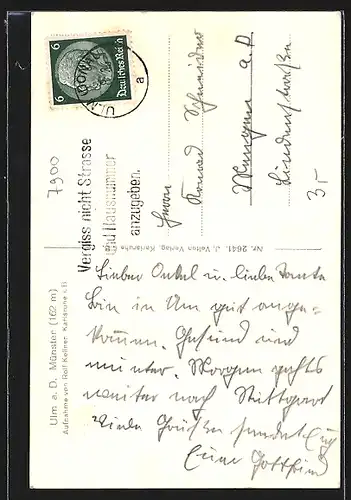 Ulm a. D. Münster (162 m)
Aufnahme von Rolf Kellner, Karlsruhe i. B.
Nr. 2641. J. Velten Verlag, Karlsruhe
6 Deutsches Reich 6
ULM (DONAU)
a
Vergiss nicht Strasse
und Hausnummer
anzugeben.
7900
Herrn
Konrad Schneider
Mengen a. D.
Lindenstraße
3,-
Lieber Onkel u. liebe Tante
Bin in Ulm gut ange-
kommen. Gesund und
munter. Morgen gehts
weiter nach Stuttgart
Viele Grüße sendet Euch
Euer Gottfried